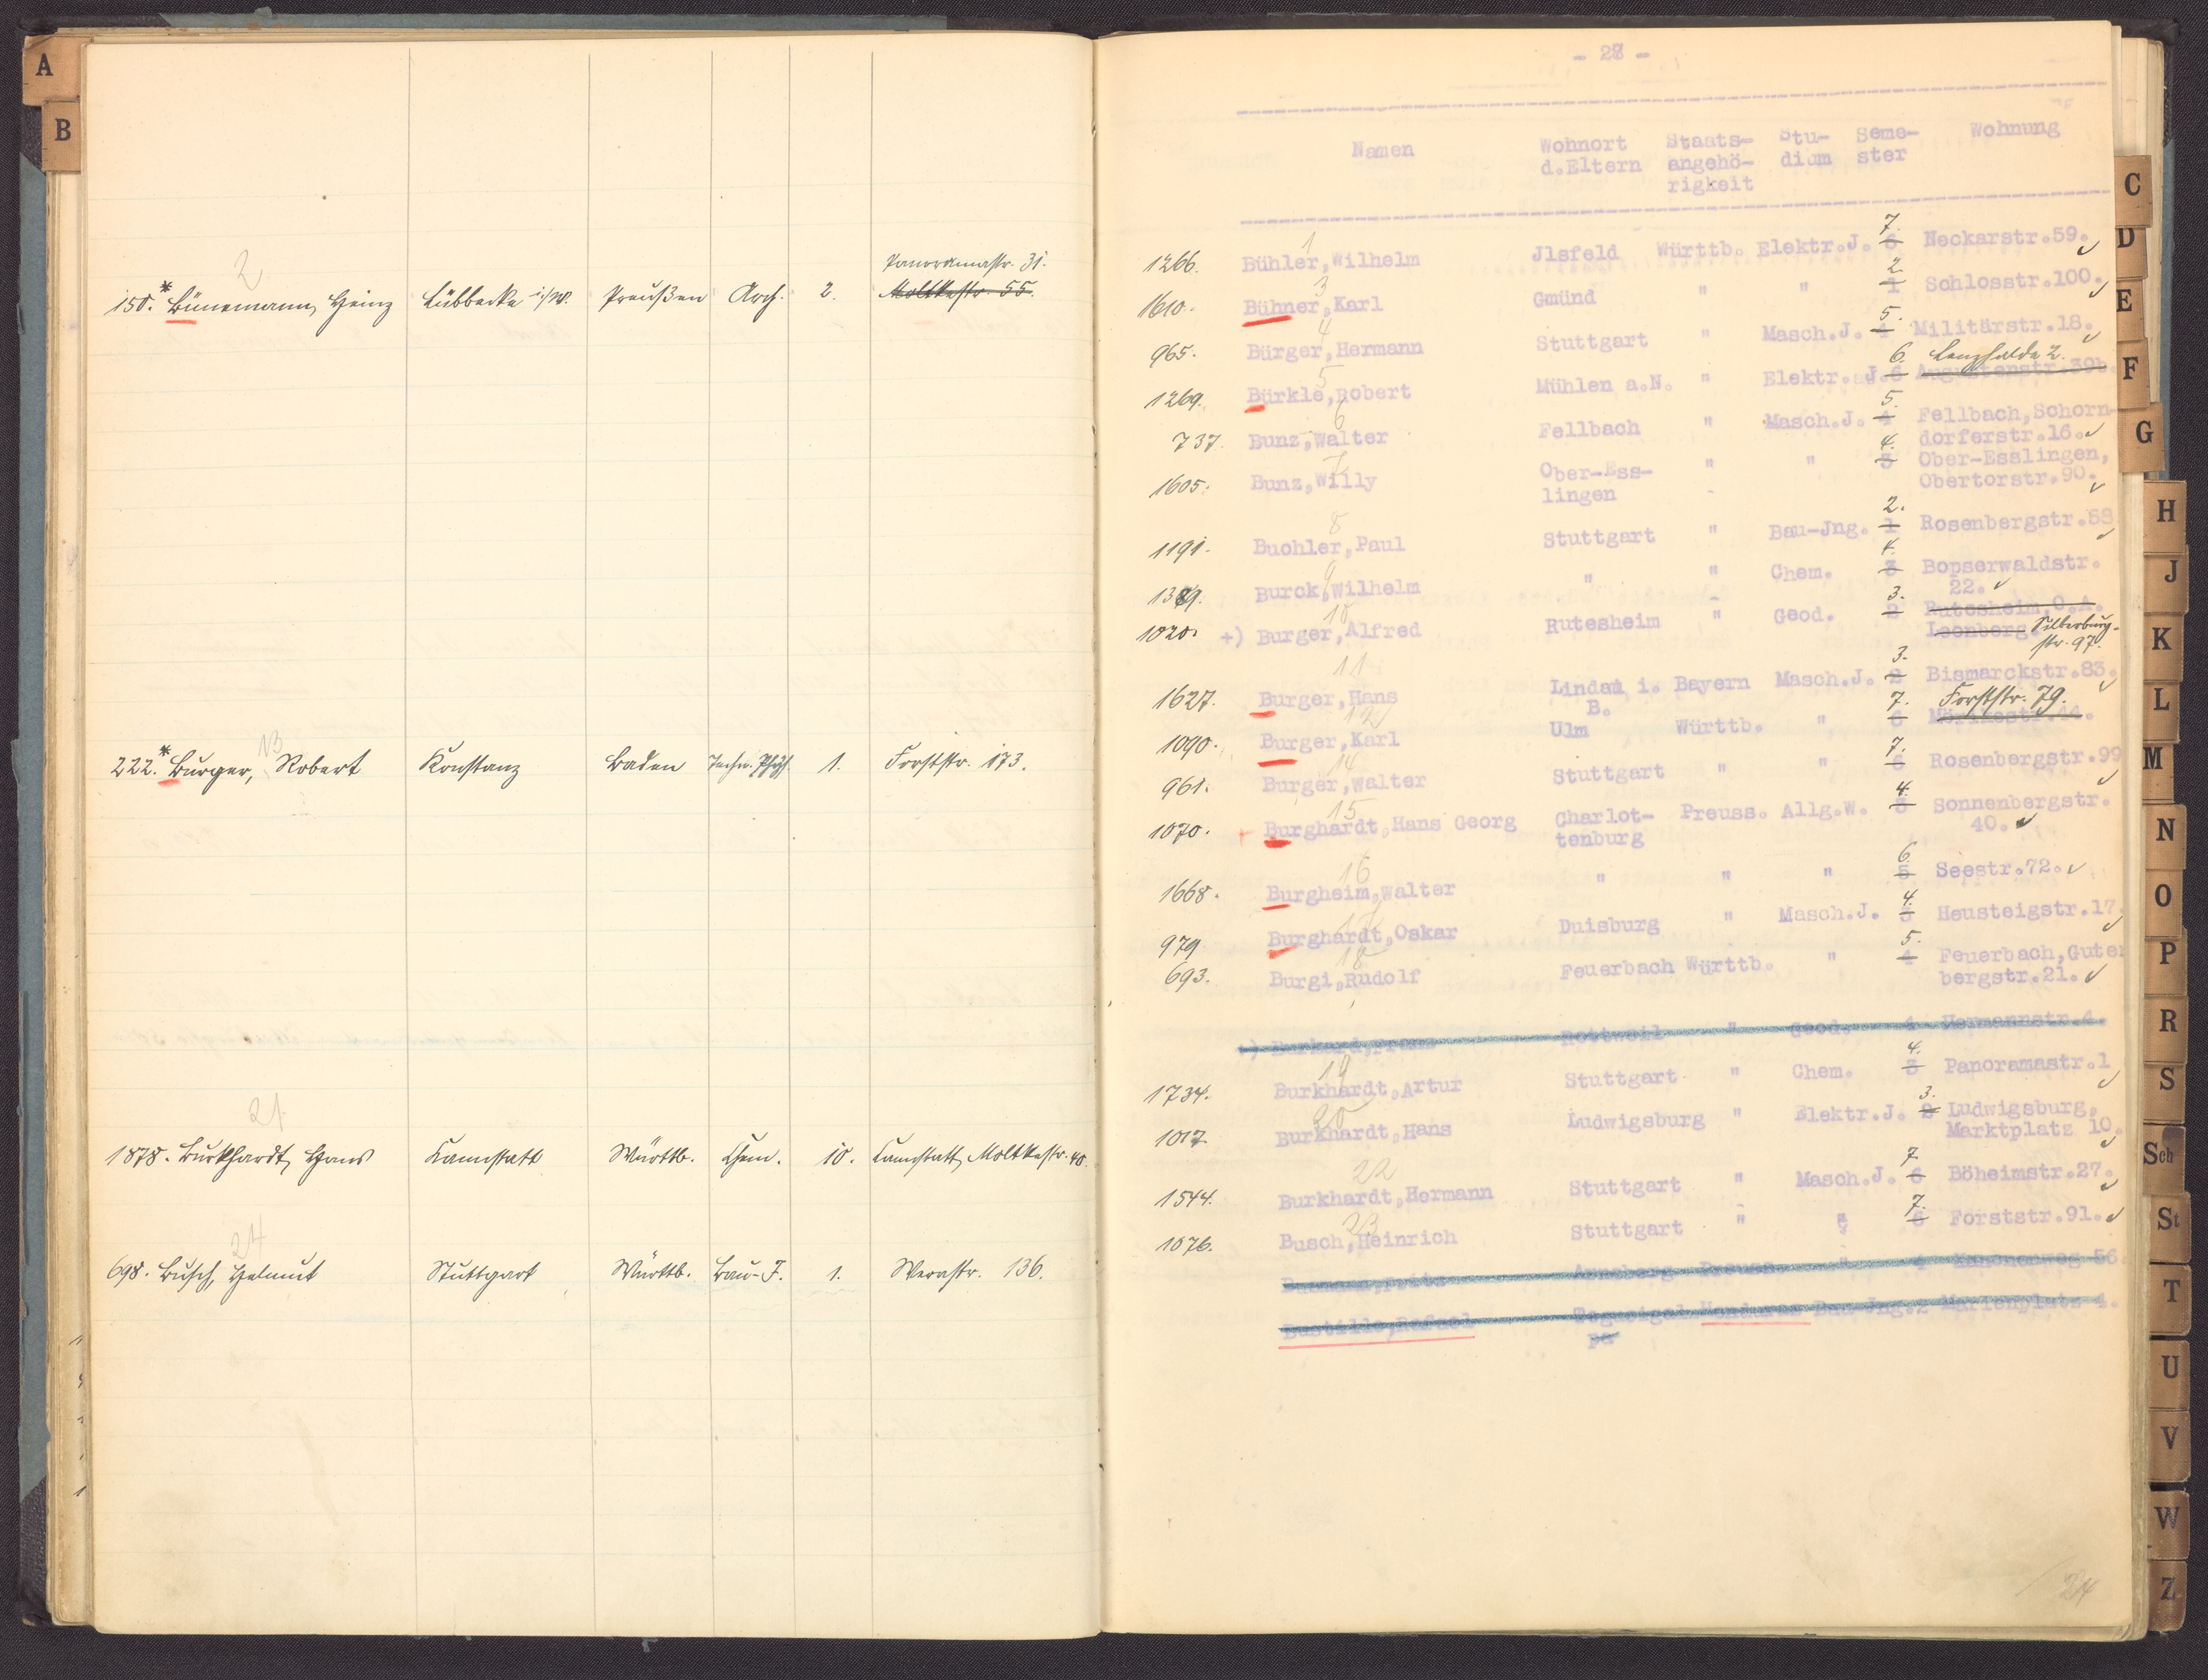 A
B
2
Panoramastr. 31.
150. * Bünemann, Heinz Lübbecke i/W. Preußen Arch. 2. Moltkestr. 55.
13
222. * Burger, Robert Konstanz Baden Techn. Phys. 1. Forststr. 173.
21
1878. Burkhardt, Hans Cannstatt Württb. Chem. 10. Cannstatt, Moltkestr. 40.
24
698. Busch, Helmut Stuttgart Württb. Bau-J. 1. Werastr. 136.
- 28 -
Namen Wohnort Staats- Stu- Seme- Wohnung
d.Eltern angehö- dium ster
rigkeit
1 7.
1266. Bühler,Wilhelm Jlsfeld Württb. Elektr.J. 6 Neckarstr.59.
3 2.
1610. Bühner,Karl Gmünd " " 1 Schlosstr.100.
4 5.
965. Bürger,Hermann Stuttgart " Masch.J. 4 Militärstr.18.
5 6. Lenzhalde 2.
1269. Bürkle,Robert Mühlen a.N. " Elektr. J. 6 Augustenstr.39b.
6 5.
737. Bunz,Walter Fellbach " Masch.J. 4 Fellbach,Schorn-
dorferstr.16.
7 4.
1605. Bunz,Willy Ober-Ess- " " 3 Ober-Esslingen,
lingen Obertorstr.90.
8 2.
1191. Buohler,Paul Stuttgart " Bau-Jng. 1 Rosenbergstr.58
9 4.
1389. Burck,Wilhelm " " Chem. 3 Bopserwaldstr.
22.
10 3.
1020. +) Burger,Alfred Rutesheim " Geod. 2 Rutesheim,O.A.
Leonberg Silberburg-
str. 97.
11 3.
1627. Burger,Hans Lindau i. Bayern Masch.J. 2 Bismarckstr.83.
B.
12 7. Forststr. 79.
1090. Burger,Karl Ulm Württb. " 6
14 7.
961. Burger,Walter Stuttgart " " 6 Rosenbergstr.99
15 4.
1070. Burghardt,Hans Georg Charlot- Preuss. Allg.W. 3 Sonnenbergstr.
tenburg 40.
16 6.
1668. Burgheim,Walter " " " 5 Seestr.72.
17 4.
979. Burghardt,Oskar Duisburg " Masch.J. 3 Heusteigstr.17.
18 5.
693. Burgi,Rudolf Feuerbach Württb. " 4 Feuerbach,Guten
bergstr.21.
+) Burkard,Franz Rottweil " Geod. 4 Hermannstr.4.
19 4.
1734. Burkhardt,Artur Stuttgart " Chem. 3 Panoramastr.1
20 3.
1017. Burkhardt,Hans Ludwigsburg " Elektr.J. 2 Ludwigsburg,
Marktplatz 10.
22 7.
1544. Burkhardt,Hermann Stuttgart " Masch.J. 6 Böheimstr.27.
23 7.
1076. Busch,Heinrich Stuttgart " " 6 Forststr.91.
Fritz Preuss. " 4 56
Bustillo,Rafael Tegucigal Honduras Bau-Jng.2 Marienplatz 4.
pa
24
C
D
E
F
G
H
J
K
L
M
N
O
P
R
S
Sch
St
T
U
V
W
Z